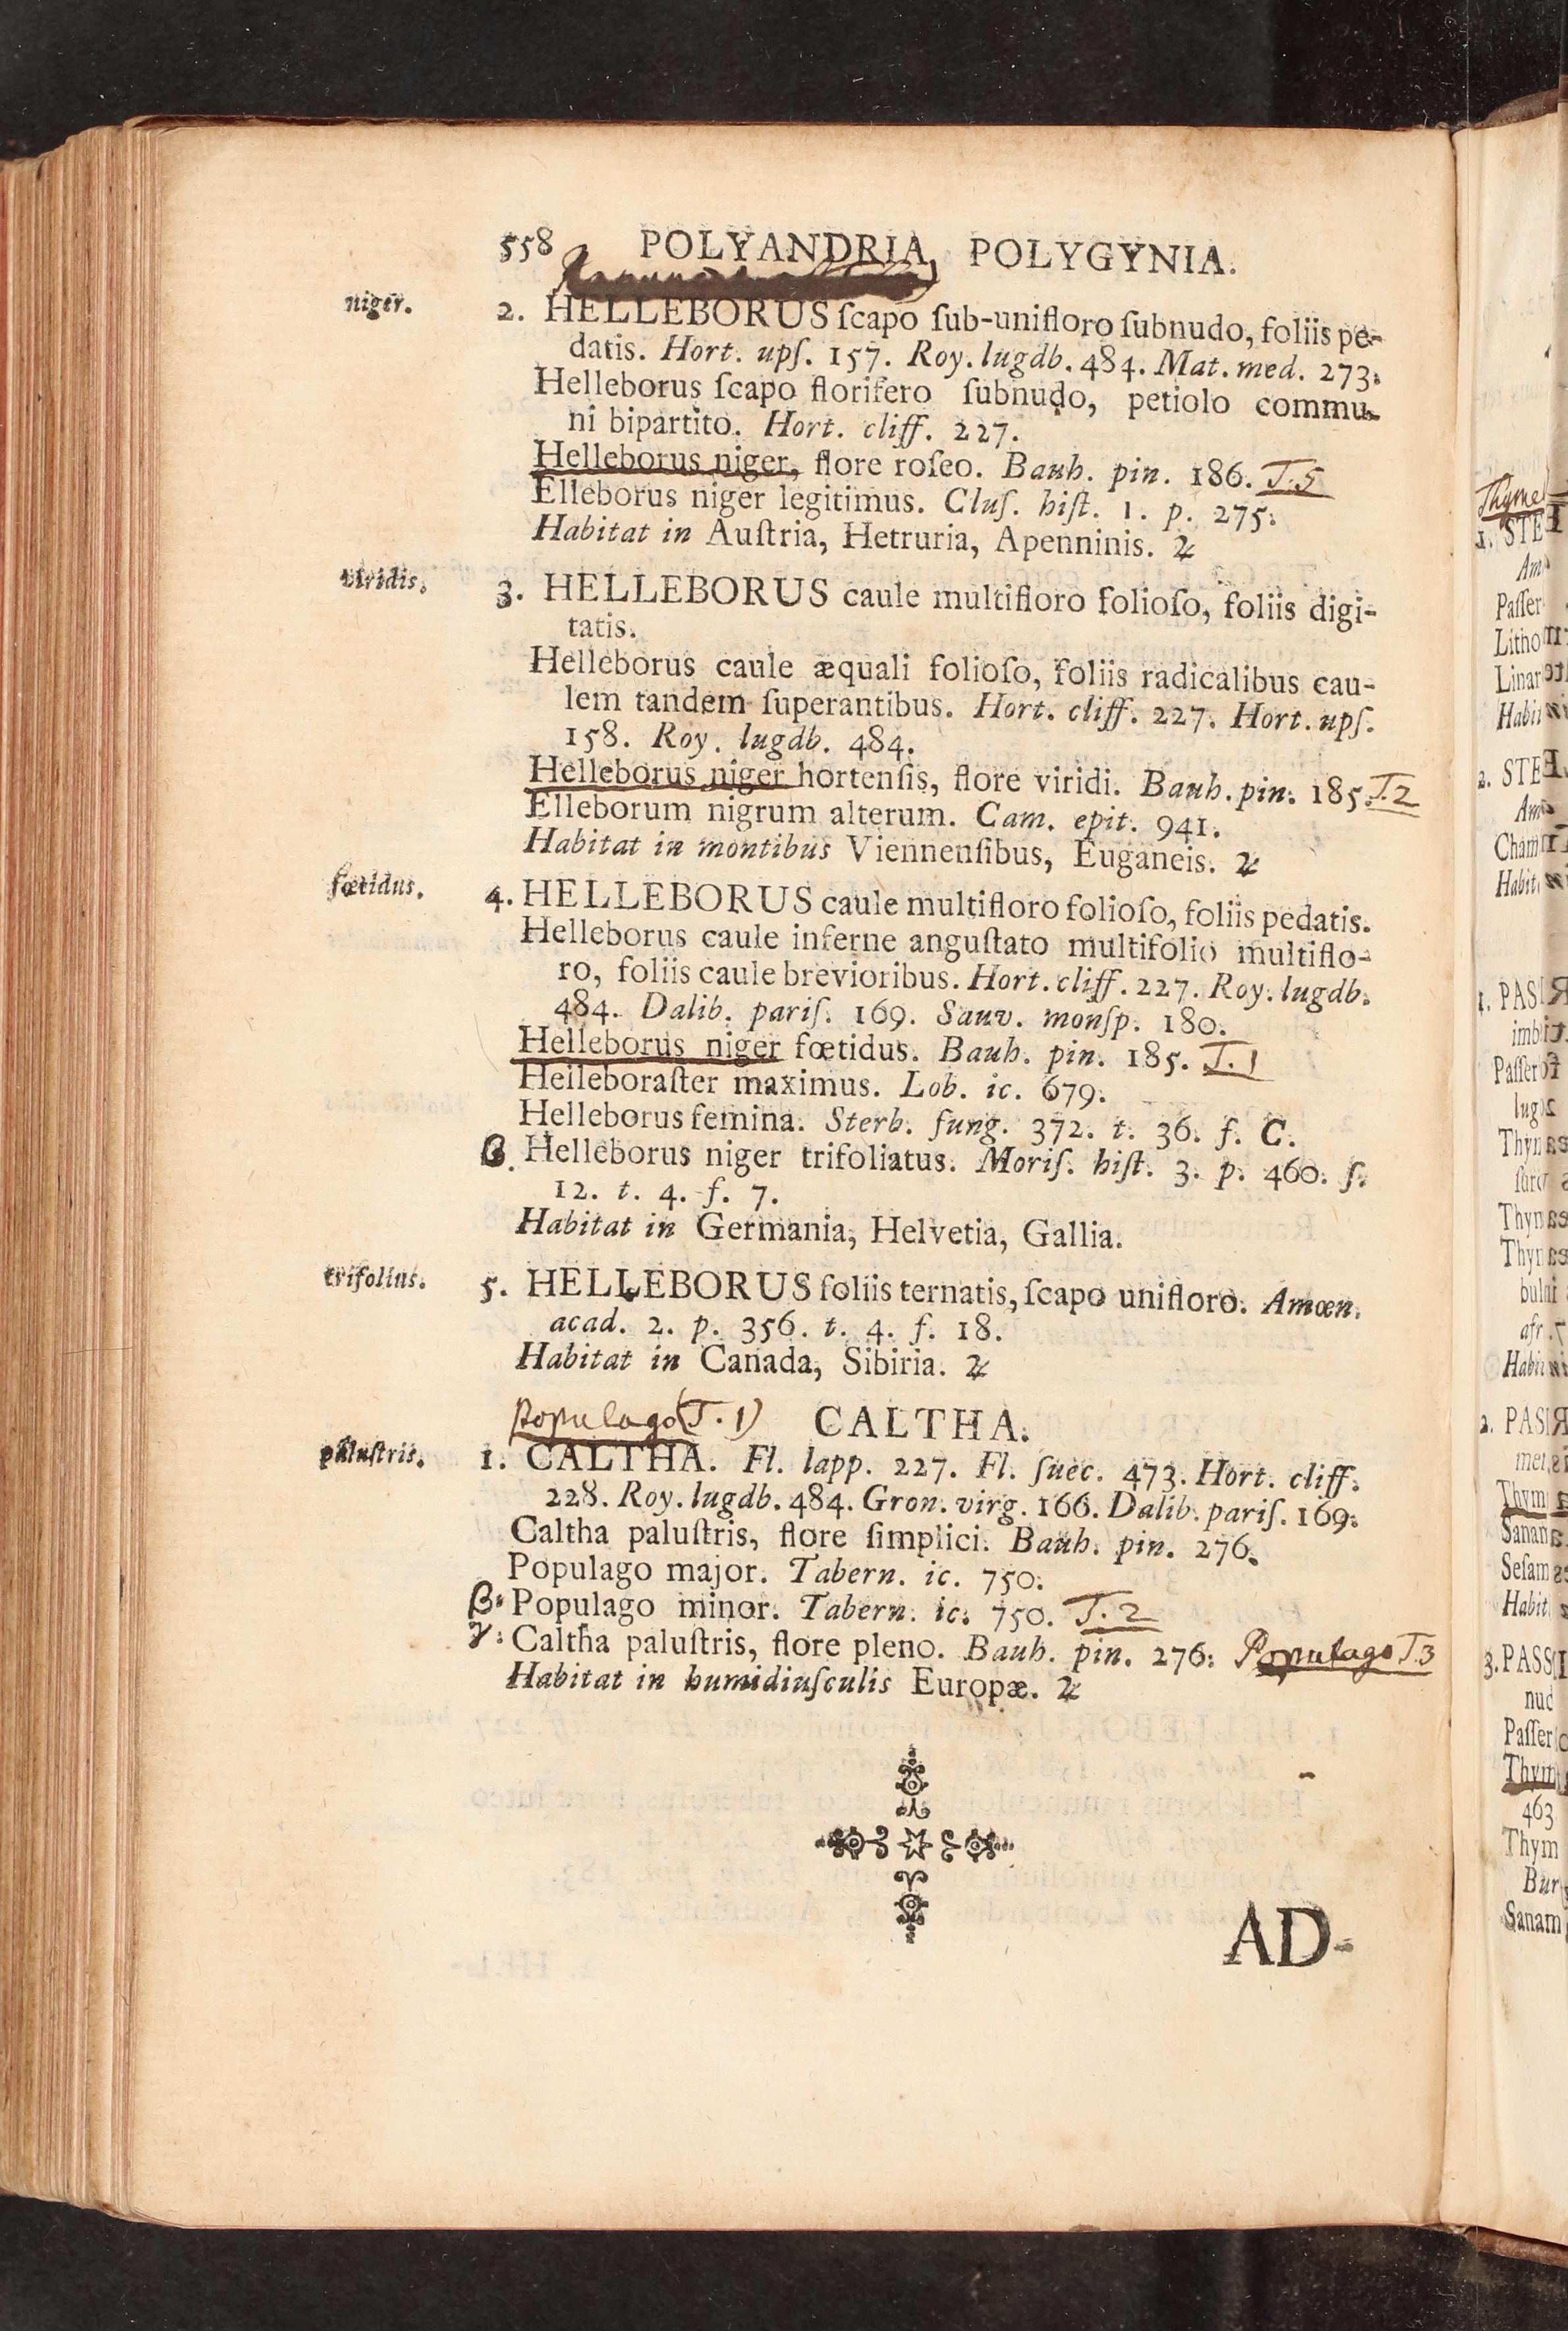 558 POLYANDRIA POLYGYNIA.
niger. 2. HELLEBORUS ſcapo ſub-unifloro ſubnudo, foliis pe-
datis. Hort. upſ. 157. Roy. lugdb. 484. Mat. med. 273.
Helleborus ſcapo florifero ſubnudo, petiolo commu-
ni bipartito. Hort. cliff. 227.
Helleborus niger, flore roſeo. Bauh. pin. 186. T.5
Elleborus niger legitimus. Cluſ. hiſt. 1. p. 275.
Habitat in Auſtria, Hetruria, Apenninis. ♃
viridis. 3. HELLEBORUS caule multifloro folioſo, foliis digi-
tatis.
Helleborus caule æquali folioſo, foliis radicalibus cau-
lem tandem ſuperantibus. Hort. cliff. 227. Hort. upſ.
158. Roy. lugdb. 484.
Helleborus niger hortenſis, flore viridi. Bauh. pin. 185. T.2
Elleborum nigrum alterum. Cam. epit. 941.
Habitat in montibus Viennenſibus, Euganeis. ♃
fœtidus. 4. HELLEBORUS caule multifloro folioſo, foliis pedatis.
Helleborus caule inferne anguſtato multifolio multiflo-
ro, foliis caule brevioribus. Hort. cliff. 227. Roy. lugdb.
484. Dalib. pariſ. 169. Sauv. monſp. 180.
Helleborus niger fœtidus. Bauh. pin. 185. T.1
Helleboraſter maximus. Lob. ic. 679.
Helleborus femina. Sterb. fung. 372. t. 36. f. C.
β. Helleborus niger trifoliatus. Moriſ. hiſt. 3. p. 460. ſ.
12. t. 4. f. 7.
Habitat in Germania, Helvetia, Gallia.
trifolius. 5. HELLEBORUS foliis ternatis, ſcapo unifloro. Amœn.
acad. 2. p. 356. t. 4. f. 18.
Habitat in Canada, Sibiria. ♃
Populago (T.1) CALTHA.
paluſtris. 1. CALTHA. Fl. lapp. 227. Fl. ſuec. 473. Hort. cliff.
228. Roy. lugdb. 484. Gron. virg. 166. Dalib. pariſ. 169.
Caltha paluſtris, flore ſimplici. Bauh. pin. 276.
Populago major. Tabern. ic. 750.
β. Populago minor. Tabern. ic. 750. T.2
γ. Caltha paluſtris, flore pleno. Bauh. pin. 276. Populago T.3
Habitat in humidiuſculis Europæ. ♃
AD-
Thyme
1. STE
Am
Paſſer
Litho
Linar
Habit
2. STE
Am
Cham
Habit
1. PAS
imbi
Paſſer
lug
Thym
Thym
Thy
bul
afr.
Habit
2. PAS
Thym
Sanam
Seſam
Habit
3. PASS
nud
Paſſer
Thym
463
Thym
Bur
Sanam